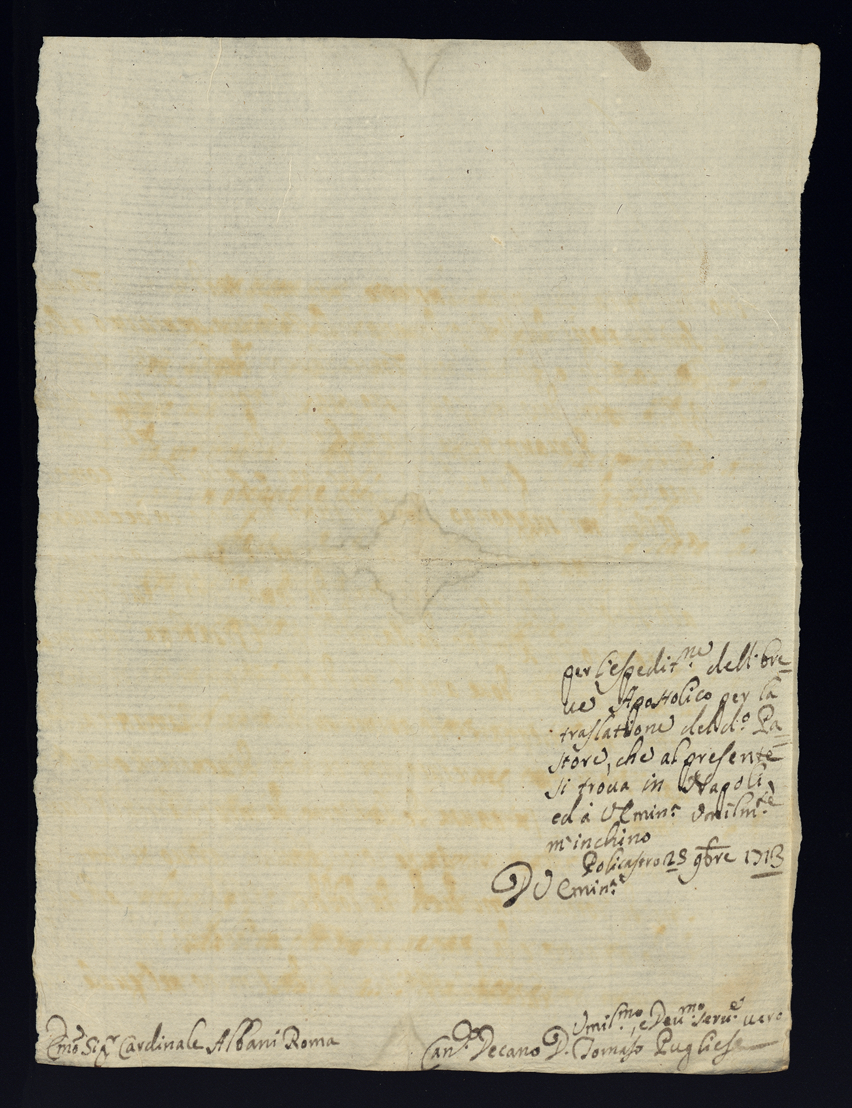 per l'espedit.ne dell'bre=
ue Apostolico per la
traslatione del d.o Pa=
store, che al presente
si troua in Napoli,
ed à V Emin.a vmilm.te
m'inchino
Policastro 28 9bre 1713
D V Emin.a
Vmil.mo, e Deu.mo seru.e uero
Can.co Decano D. Tomaso Pugliese
Em.o Sig.r Cardinale Albani Roma